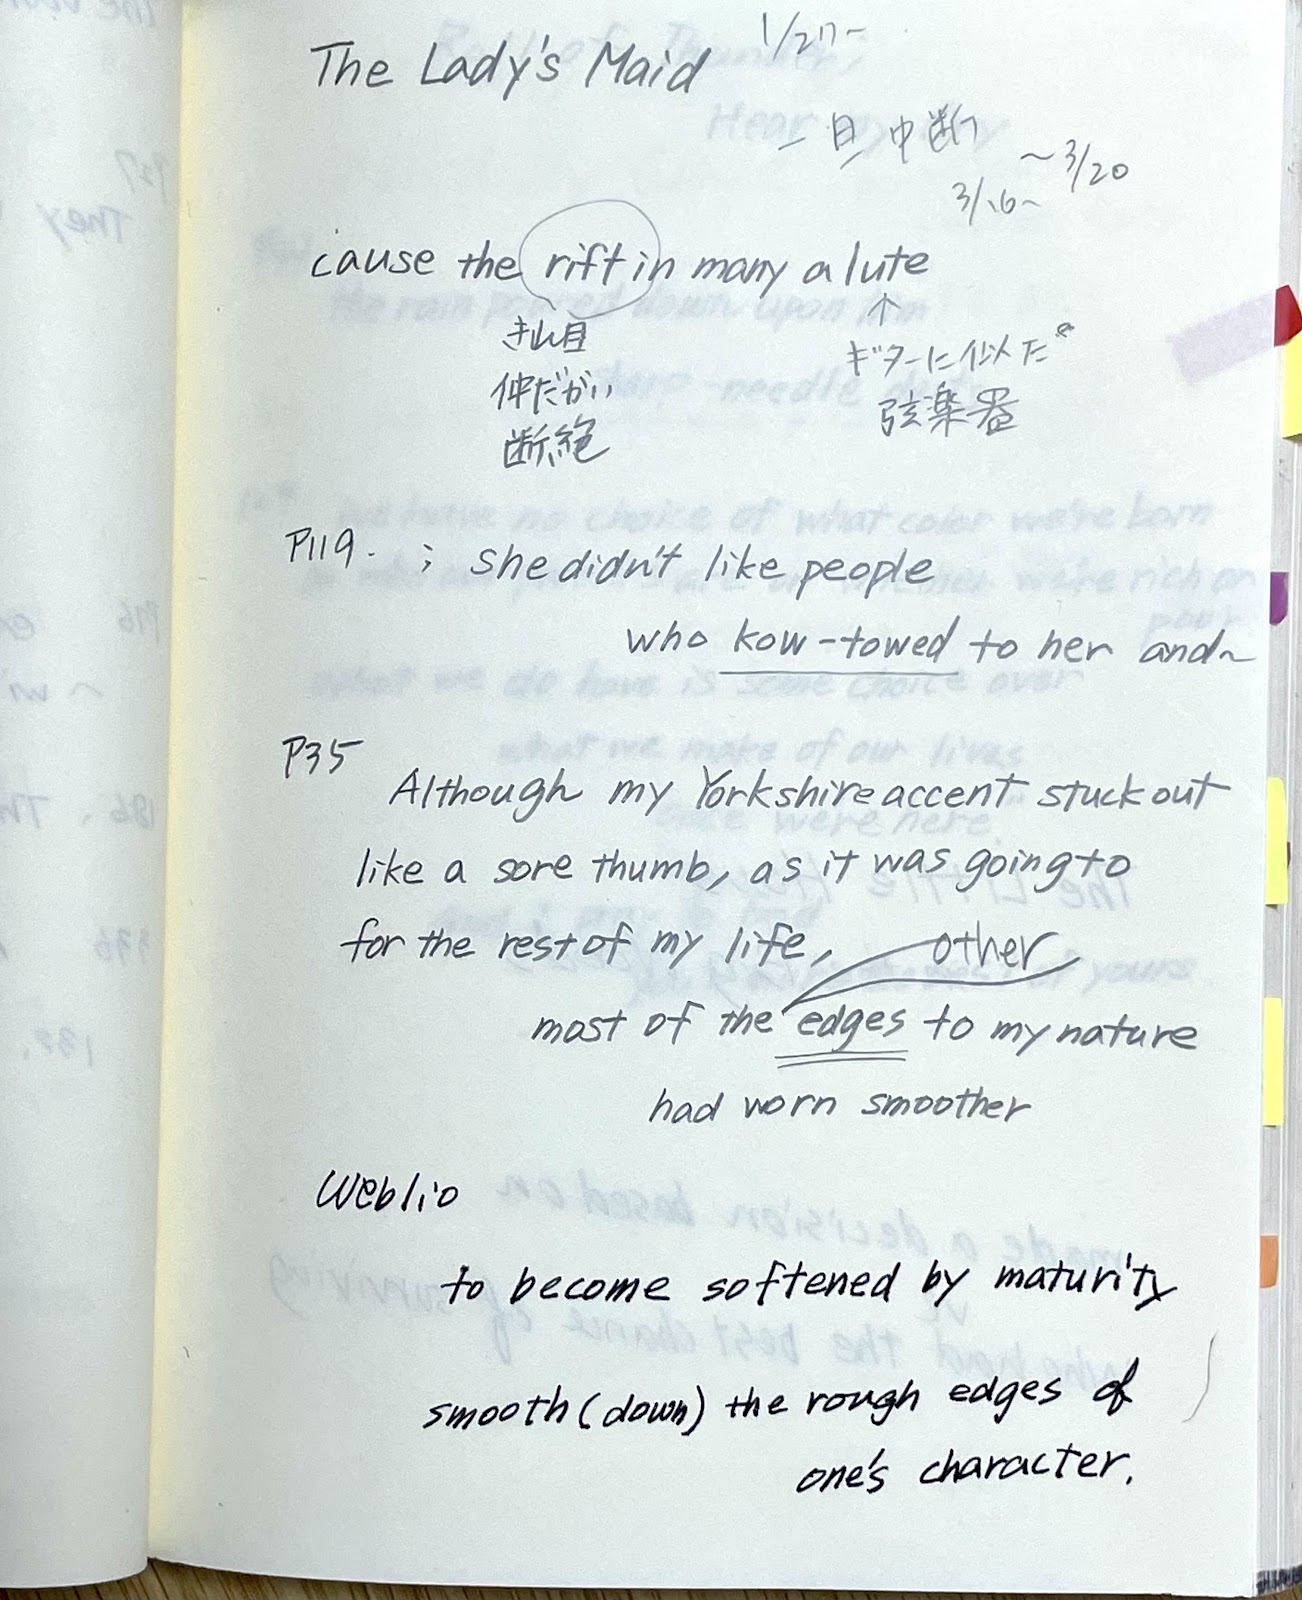 The Lady's Maid 1/27~
一旦中断
3/16~ ~3/20
cause the rift in many a lute
きれ目
仲だがい
断絶
↑
ギターに似た
弦楽器
P119. ; she didn't like people
who kow-towed to her and~
P35
Although my Yorkshire accent stuck out
like a sore thumb, as it was going to
for the rest of my life,
other
most of the edges to my nature
had worn smoother
Weblio
to become softened by maturity
smooth (down) the rough edges of
one's character.